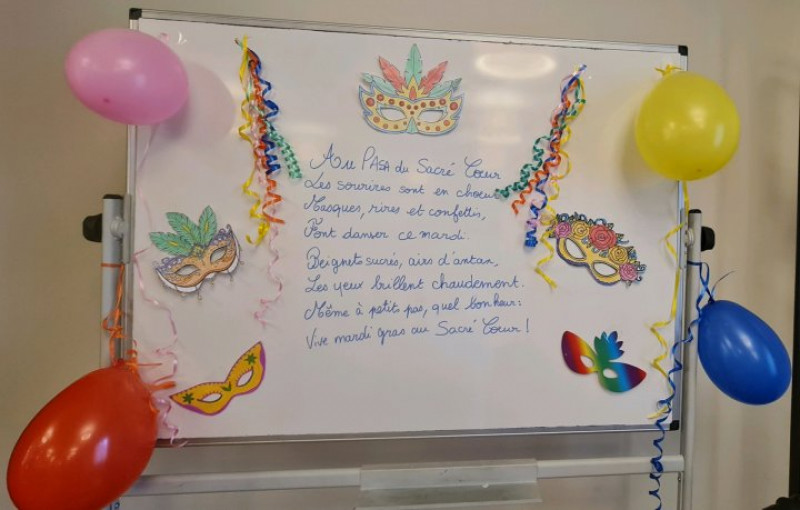 Au PASA du Sacré Coeur
Les sourires sont en choeur
Masques, rires et confettis,
Font danser ce mardi.
Beignets sucrés, airs d'antan,
Les yeux brillent chaudement.
Même à petits pas, quel bonheur:
Vive mardi gras au Sacré Coeur!